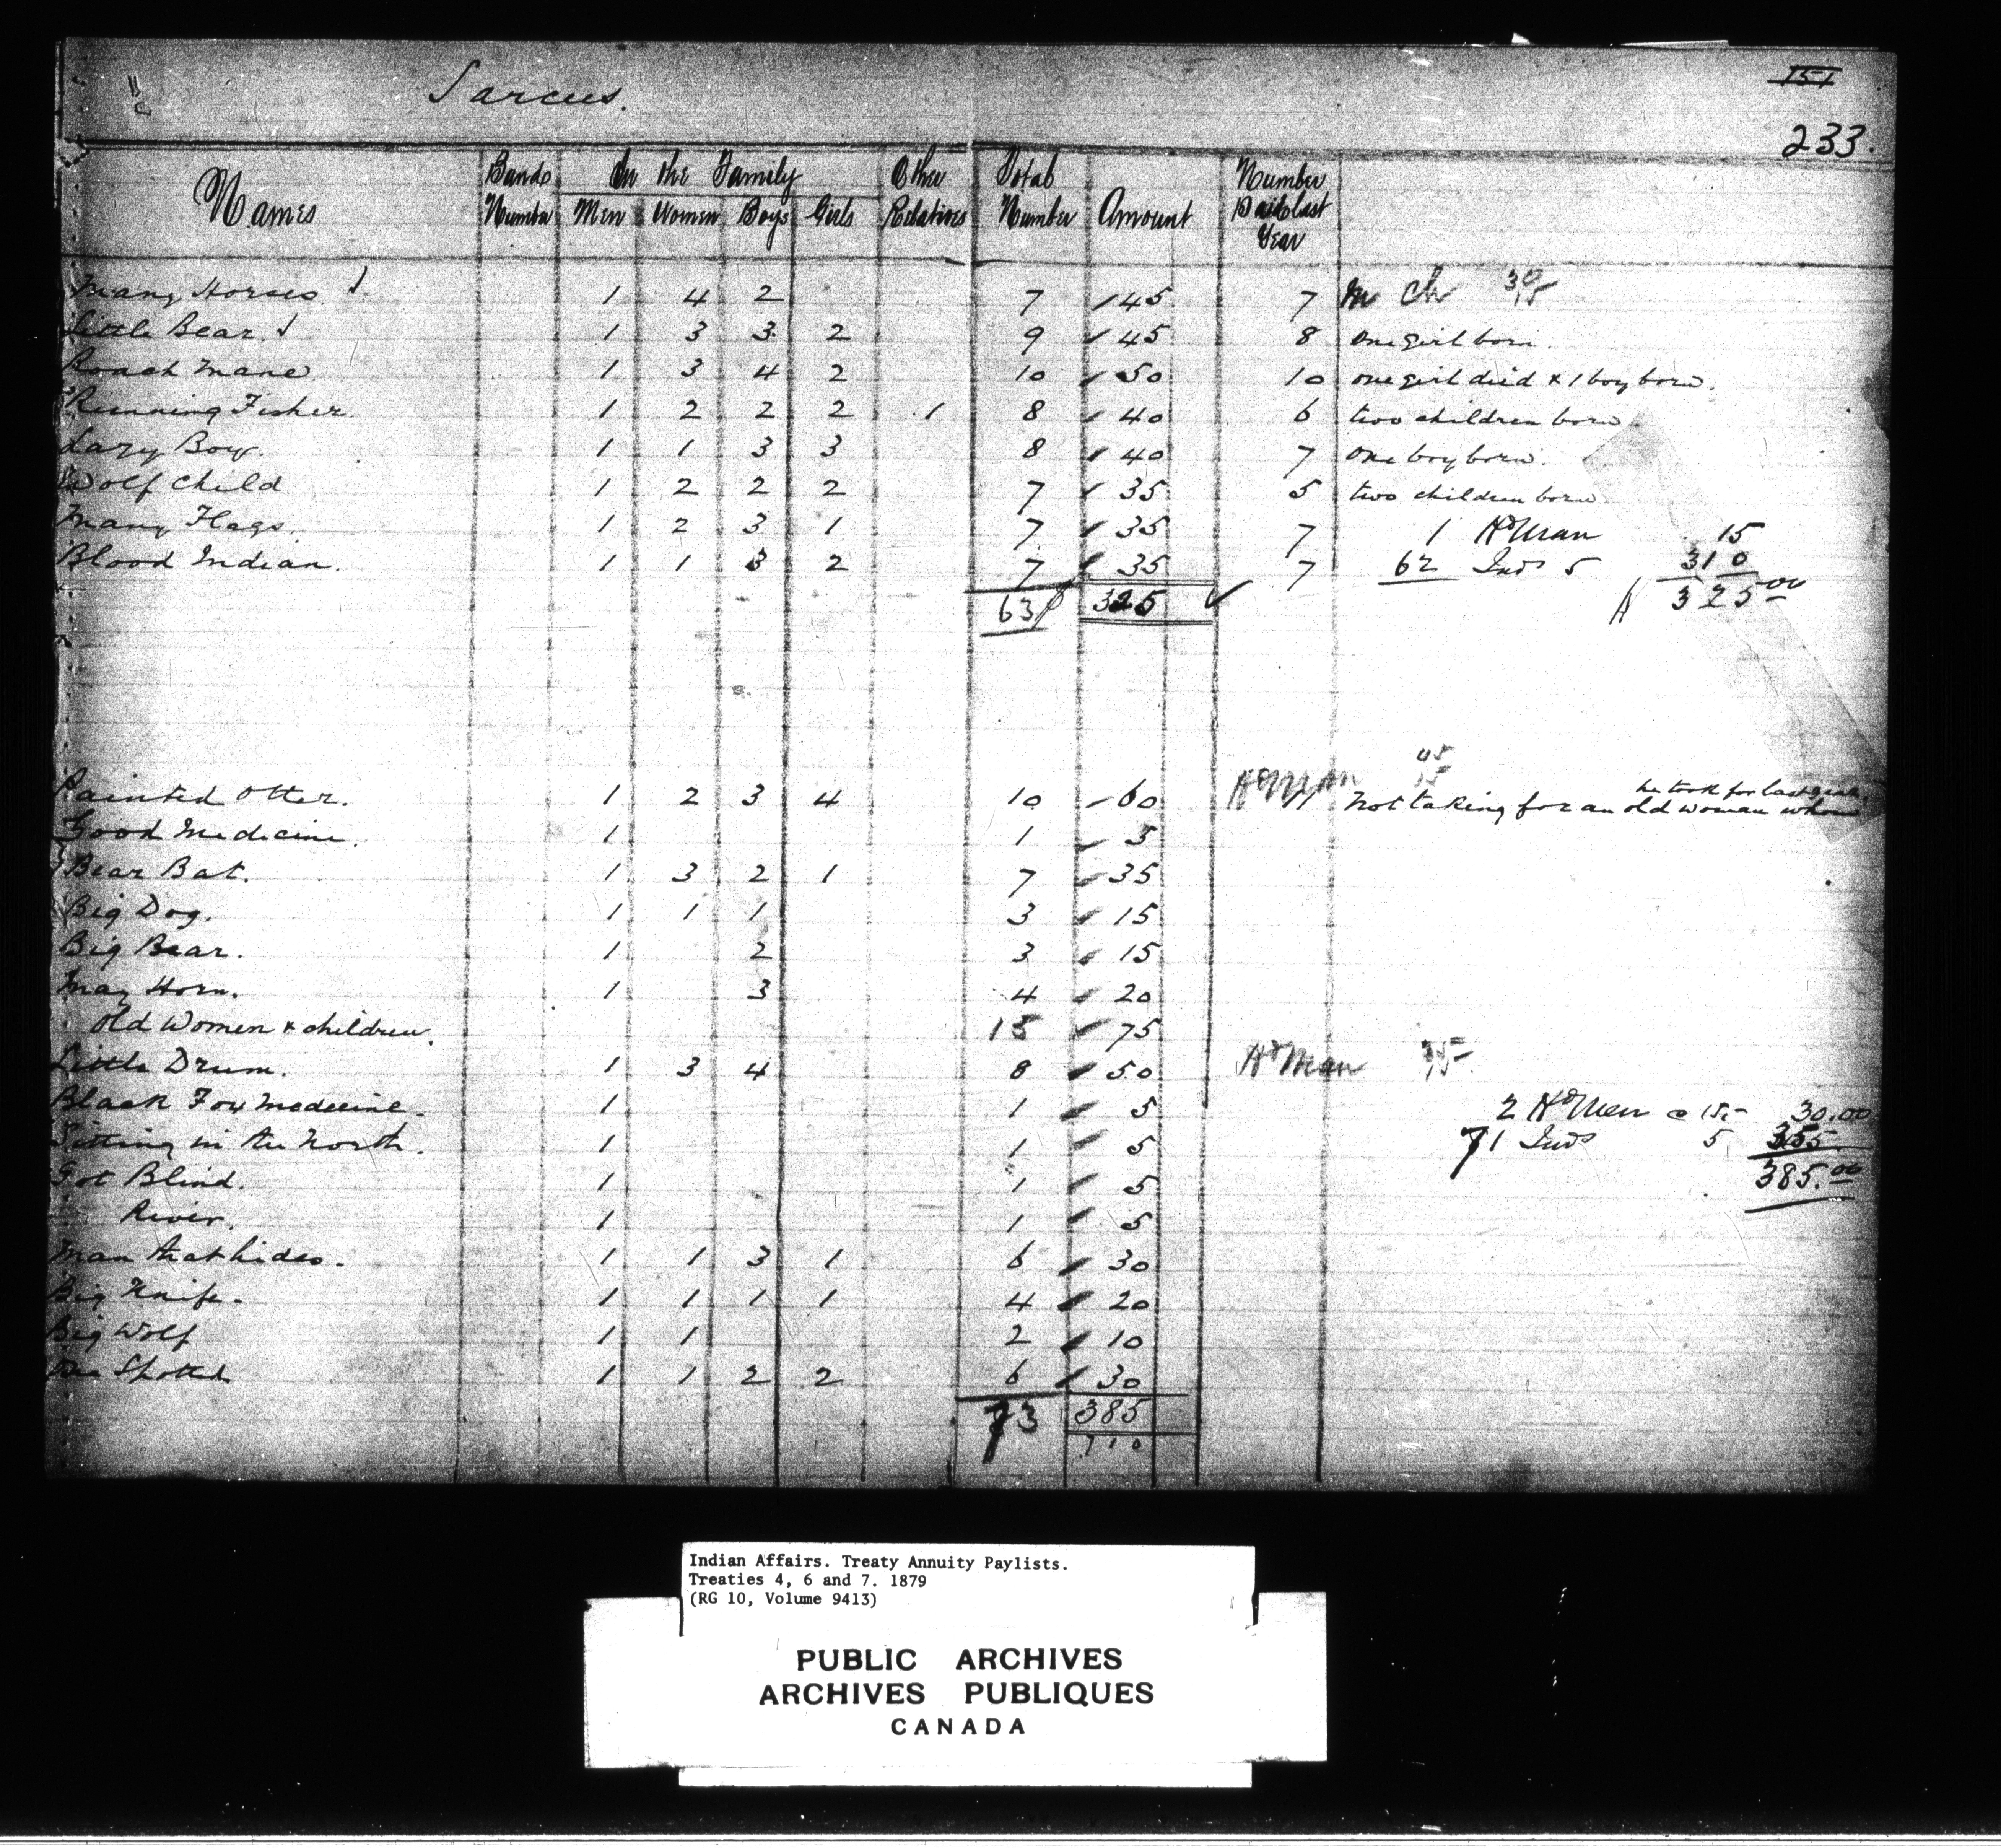 Sarcees.
151
233.
Names | Bands Number | In the Family | Men | Women | Boys | Girls | Other Relatives | Total Number | Amount | Number Paid last Year
Many Horses 1 4 2 7 45 7 M Ch
Little Bear 1 3 3 2 9 45 8 one girl born.
Roach Mane 1 3 4 2 10 50 10 one girl died & 1 boy born.
Running Fisher 1 2 2 2 1 8 40 6 two children born.
Lazy Boy. 1 1 3 3 8 40 7 one boy born.
Wolf Child 1 2 2 2 7 35 5 two children born
Many Flags. 1 2 3 1 7 35 7 1 Hd Man 15
Blood Indian. 1 1 3 2 7 35 7 62 Inds 5 310
63 325 325 00
Painted Otter. 1 2 3 4 10 60 Hd Man 11 Not taking for an old woman whom he took for last year.
Good Medicine. 1 1 5
Bear Bat. 1 3 2 1 7 35
Big Dog. 1 1 1 3 15
Big Bear. 1 2 3 15
May Horn. 1 3 4 20
Old Women & children. 15 75
Little Drum. 1 3 4 8 50 Hd Man
Black Fox Medecine. 1 1 5 2 Hd Men @ 15.- 30.00
Sitting in the North. 1 1 5 71 Inds 5 355
Got Blind. 1 1 5 385.00
River. 1 1 5
Man that hides. 1 1 3 1 6 30
Big Knife. 1 1 1 1 4 20
Big Wolf 1 1 2 10
One Spotted 1 1 2 2 6 30
73 385
710
Indian Affairs. Treaty Annuity Paylists.
Treaties 4, 6 and 7. 1879
(RG 10, Volume 9413)
PUBLIC ARCHIVES
ARCHIVES PUBLIQUES
CANADA